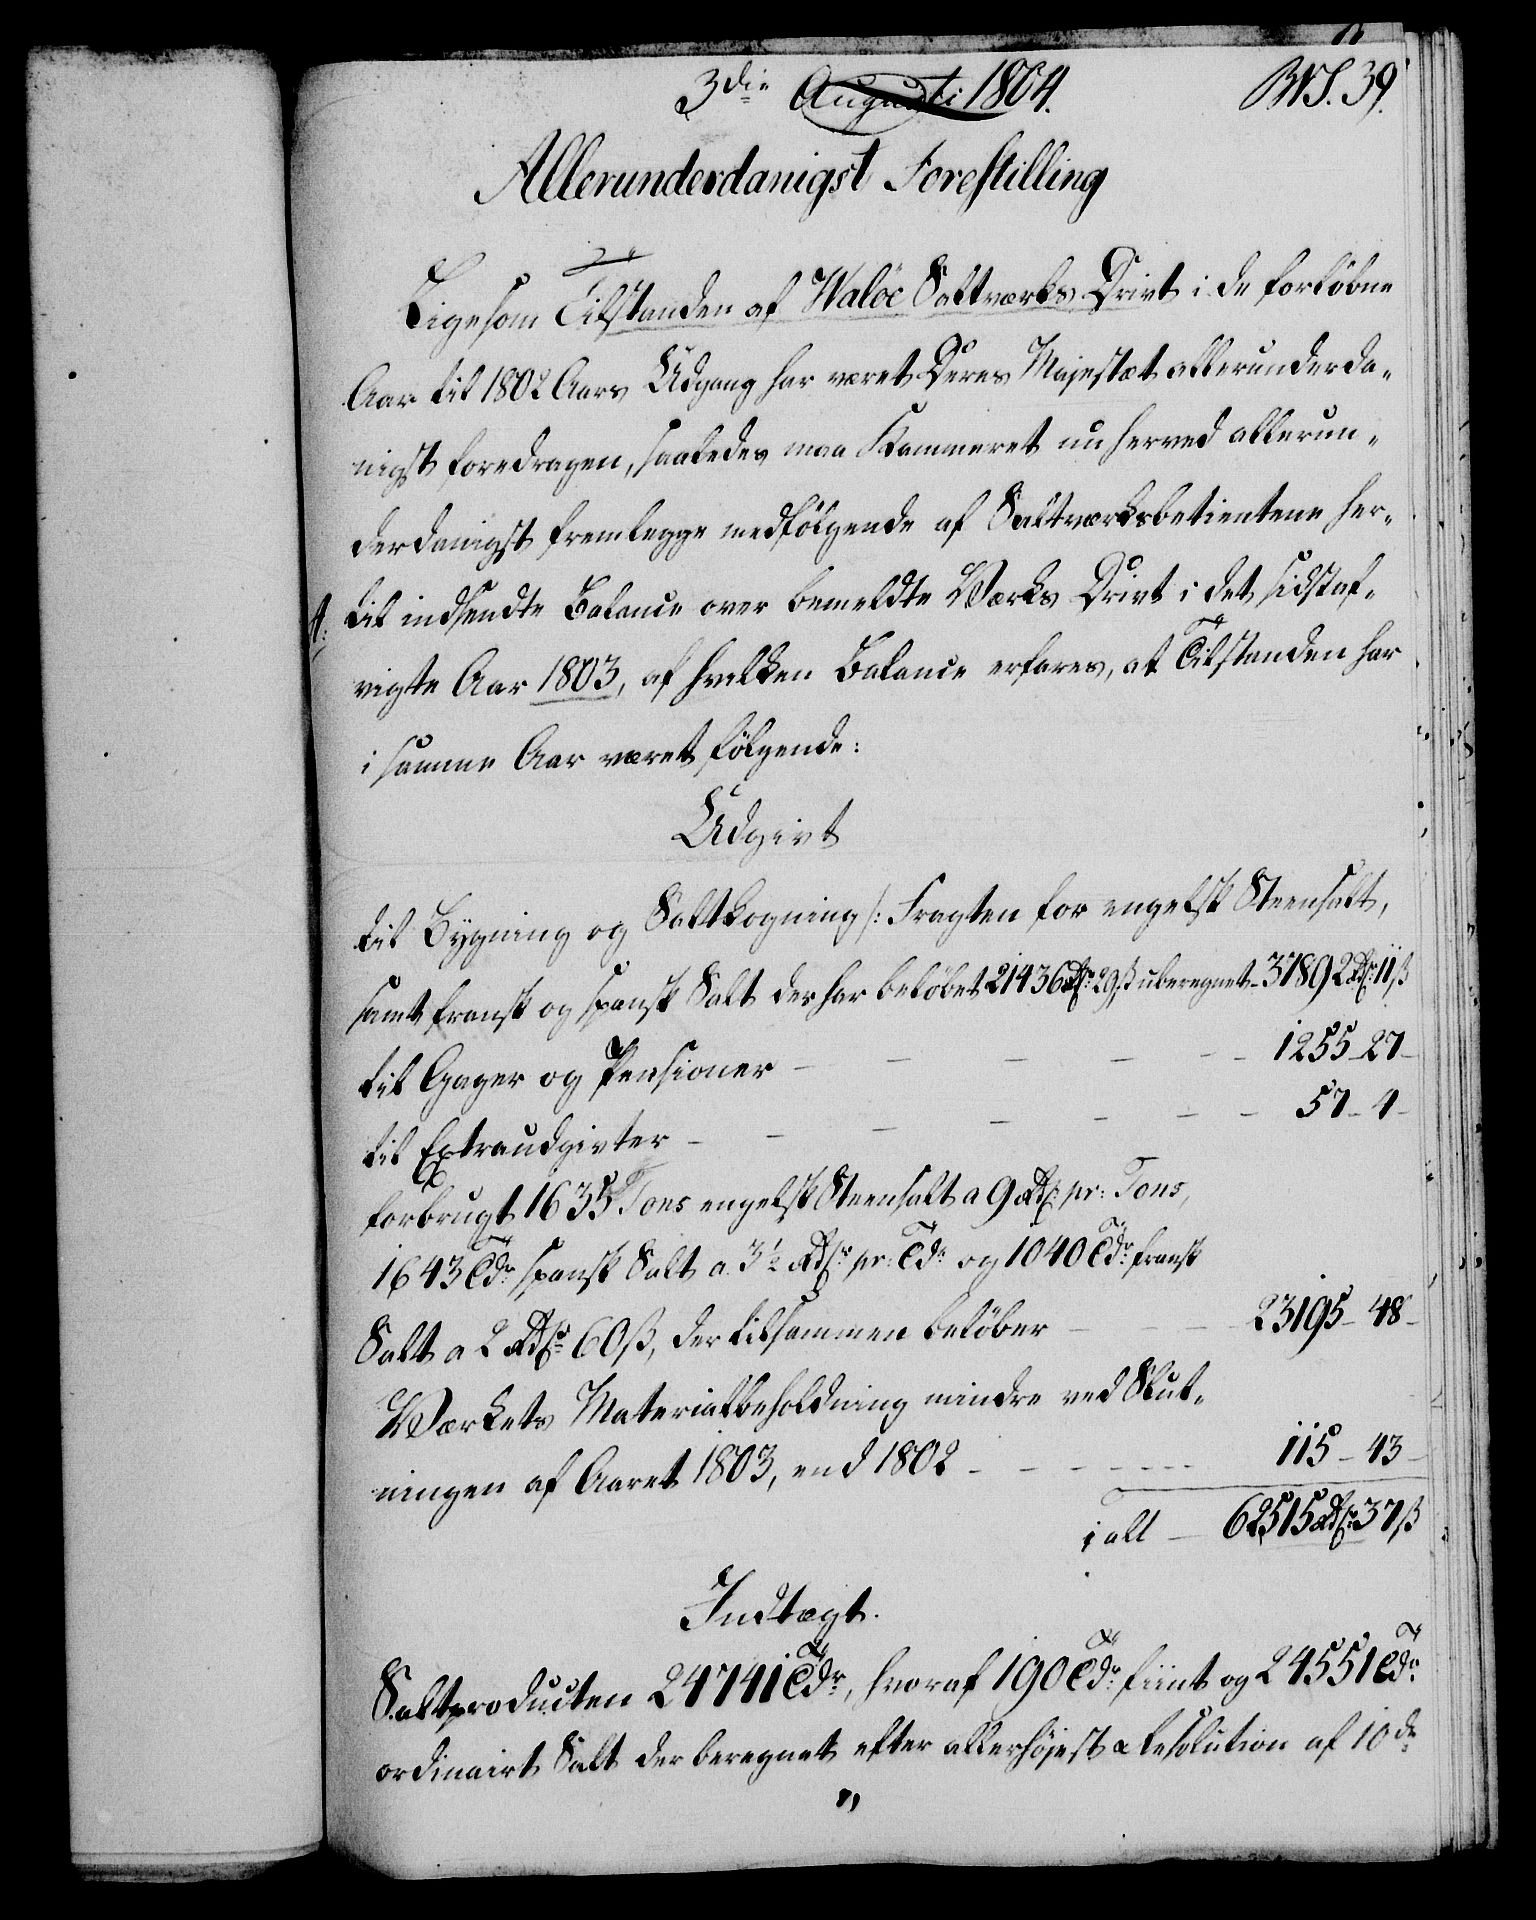 3die Augusti 1804. BVS. 39.
Allerunderdanigst Forestilling
Ligesom Tilstanden af Waløe Saltværks Drivt i de forløbne
Aar til 1802 Aars Udgang har været Deres Majestæt allerunderda-
nigst foredragen, saaledes maa Kammeret nu herved allerun-
derdanigst fremlegge medfølgende af Saltværksbetientene her-
til indsendte Balance over bemeldte Værks Drivt i det sidstaf-
vigte Aar 1803, af hvilken Balance erfares, at Tilstanden har
i samme Aar været følgende:
Udgivt
til Bygning og Saltkogning /: Fragten for engelsk Steensalt,
samt fransk og spansk Salt der har beløbet 21436 Rdr 29 ß uberegnet - 37892 Rdr 11 ß
til Gager og Pensioner - - - - - 1255 - 27 -
til Extraudgivter - - - - - - 57 - 4 -
forbrugt 1635 Tons engelsk Steensalt a 9 Rdr pr: Tons,
1643 Tdr spansk Salt a 3½ Rdr pr: Tde og 1040 Tdr fransk
Salt a 2 Rdr 60 ß, der tilsammen beløber - - - 23195 - 48 -
Værkets Materialbeholdning mindre ved Slut-
ningen af Aaret 1803, end 1802 - - - - - 115 - 43 -
i alt - 62515 Rdr 37 ß
Indtægt.
Saltproducten 24741 Tdr, hvoraf 190 Tdr fiint og 24551 Tdr
ordinairt Salt der beregnet efter allerhøjest Resolution af 10de